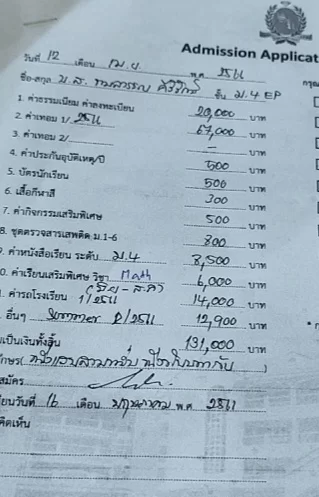 Admission Applicat
วันที่ 12 เดือน เม.ย. พ.ศ 2511
ชื่อ-สกุล น.ส. ชั้น ม.4 EP
1. ค่าธรรมเนียม ค่าลงทะเบียน 20,000 บาท
2. ค่าเทอม 1/ 2511 67,000 บาท
3. ค่าเทอม 2/ – บาท
4. ค่าประกันอุบัติเหตุ/ปี 500 บาท
5. บัตรนักเรียน 500 บาท
6. เสื้อกีฬาสี 300 บาท
7. ค่ากิจกรรมเสริมพิเศษ 500 บาท
8. ชุดตรวจสารเสพติด ม.1-6 800 บาท
ค่าหนังสือเรียน ระดับ ม.4 8,500 บาท
0. ค่าเรียนเสริมพิเศษ วิชา Math 6,000 บาท
. ค่ารถโรงเรียน 1/2511 14,000 บาท
อื่นๆ Summer 2/2511 12,900 บาท
เป็นเงินทั้งสิ้น 131,000 บาท
สมัคร
ยนวันที่ 16 เดือน พฤษภาคม พ.ศ 2511
คิดเห็น